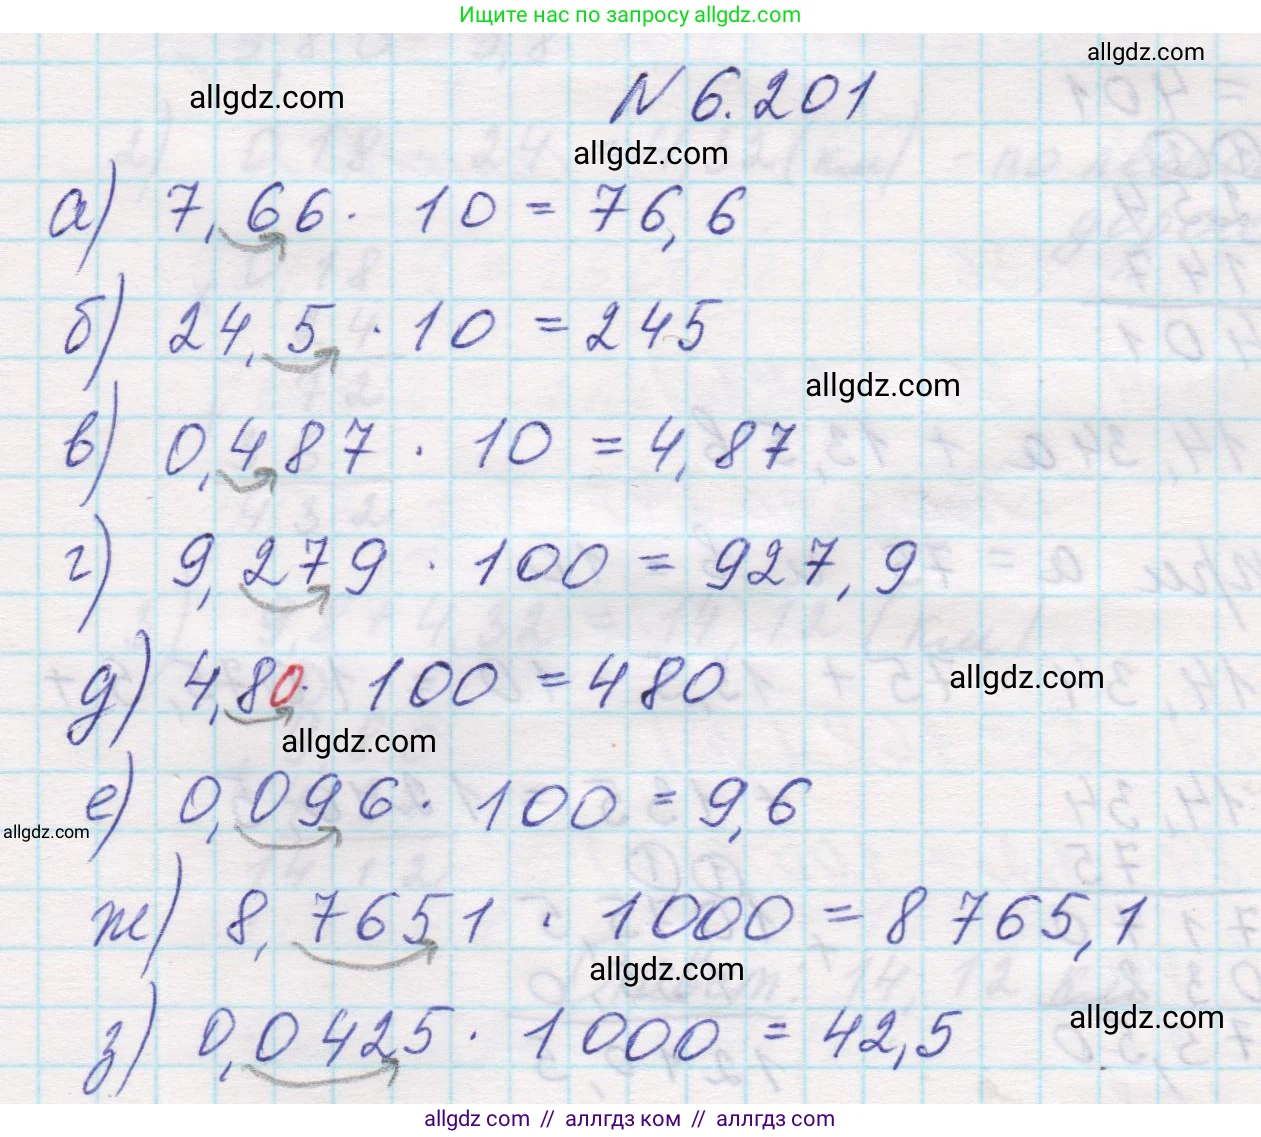 Ищите нас по запросу allgdz.com
allgdz.com
allgdz.com
N 6.201
allgdz.com
а) 7,66 · 10 = 76,6
б) 24,5 · 10 = 245
allgdz.com
в) 0,487 · 10 = 4,87
г) 9,279 · 100 = 927,9
д) 4,80 · 100 = 480
allgdz.com
allgdz.com
е) 0,096 · 100 = 9,6
allgdz.com
ж) 8,7651 · 1000 = 8765,1
allgdz.com
allgdz.com
з) 0,0425 · 1000 = 42,5
allgdz.com // аллгдз ком // аллгдз.com